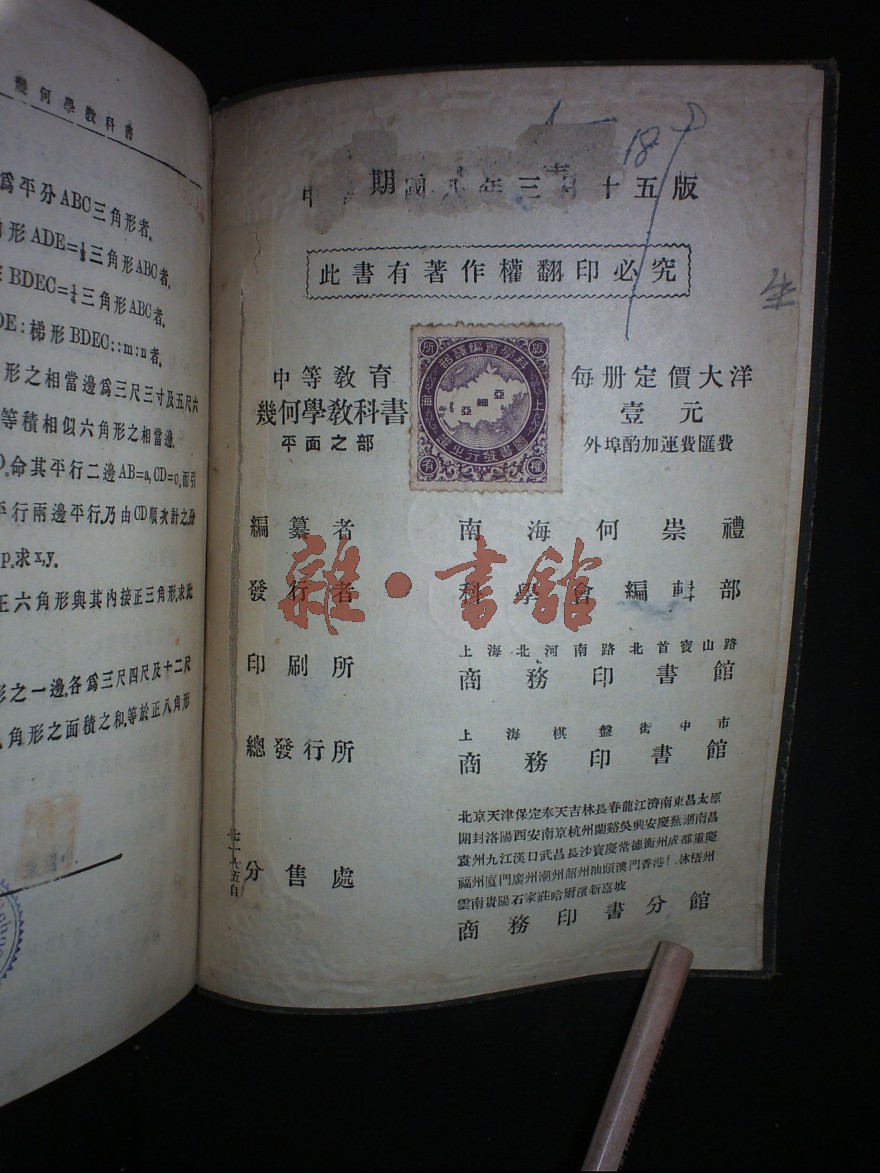 幾何學教科書
爲平分ABC三角形者.
形ADE=⅓三角形ABC者.
BDEC=¼三角形ABC者.
DE:梯形BDEC::m:n者.
形之相當邊爲三尺三寸及五尺六
等積相似六角形之相當邊.
命其平行二邊AB=a,CD=c.而引
平行兩邊平行.乃由CD順次計之分
p.求x,y.
正六角形與其內接正三角形.求此
形之一邊.各爲三尺四尺及十二尺
角形之面積之和.等於正八角形
18
年三月十五版
此書有著作權翻印必究
中等教育
幾何學教科書
平面之部
每册定價大洋
壹元
外埠酌加運費匯費
版權所有
亞細亞
編纂者 南海何崇禮
發行者 科學會編輯部
印刷所 上海北河南路北首寶山路
商務印書館
總發行所 上海棋盤街中市
商務印書館
分售處
北京天津保定奉天吉林長春龍江濟南東昌太原
開封洛陽西安南京杭州蘭谿吳興安慶蕪湖南昌
袁州九江漢口武昌長沙寶慶常德衡州成都重慶
福州廈門廣州潮州韶州汕頭澳門香港 梧州
雲南貴陽石家莊哈爾濱新嘉坡
商務印書分館
雜·書館